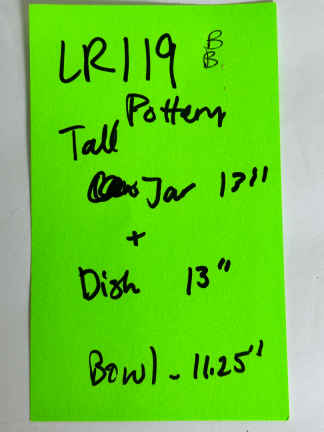 LR119 B B
Pottery
Tall
Jar 17"
+
Dish 13"
Bowl - 11.25"